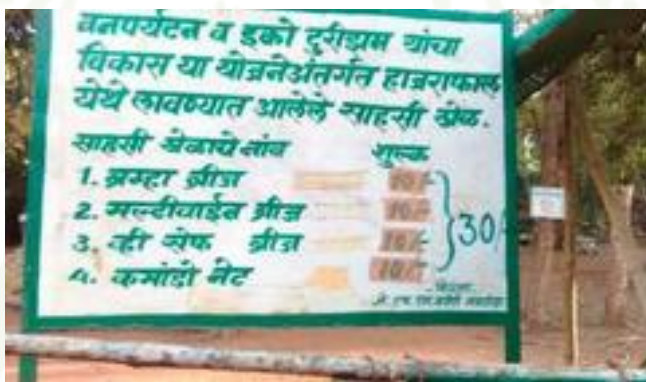 वनपर्यटन व इको टुरीझम यांचा
विकास या योजनेअंतर्गत हाजराफाल
येथे लावण्यात आलेले साहसी खेळ.
साहसी खेळाचे नांव शुल्क
1. ब्रम्हा ब्रीज 10/-
2. मल्टीवाईन ब्रीज 10/-
3. व्ही सेफ ब्रीज 10/-
4. कमांडो नेट 10/-
30/-